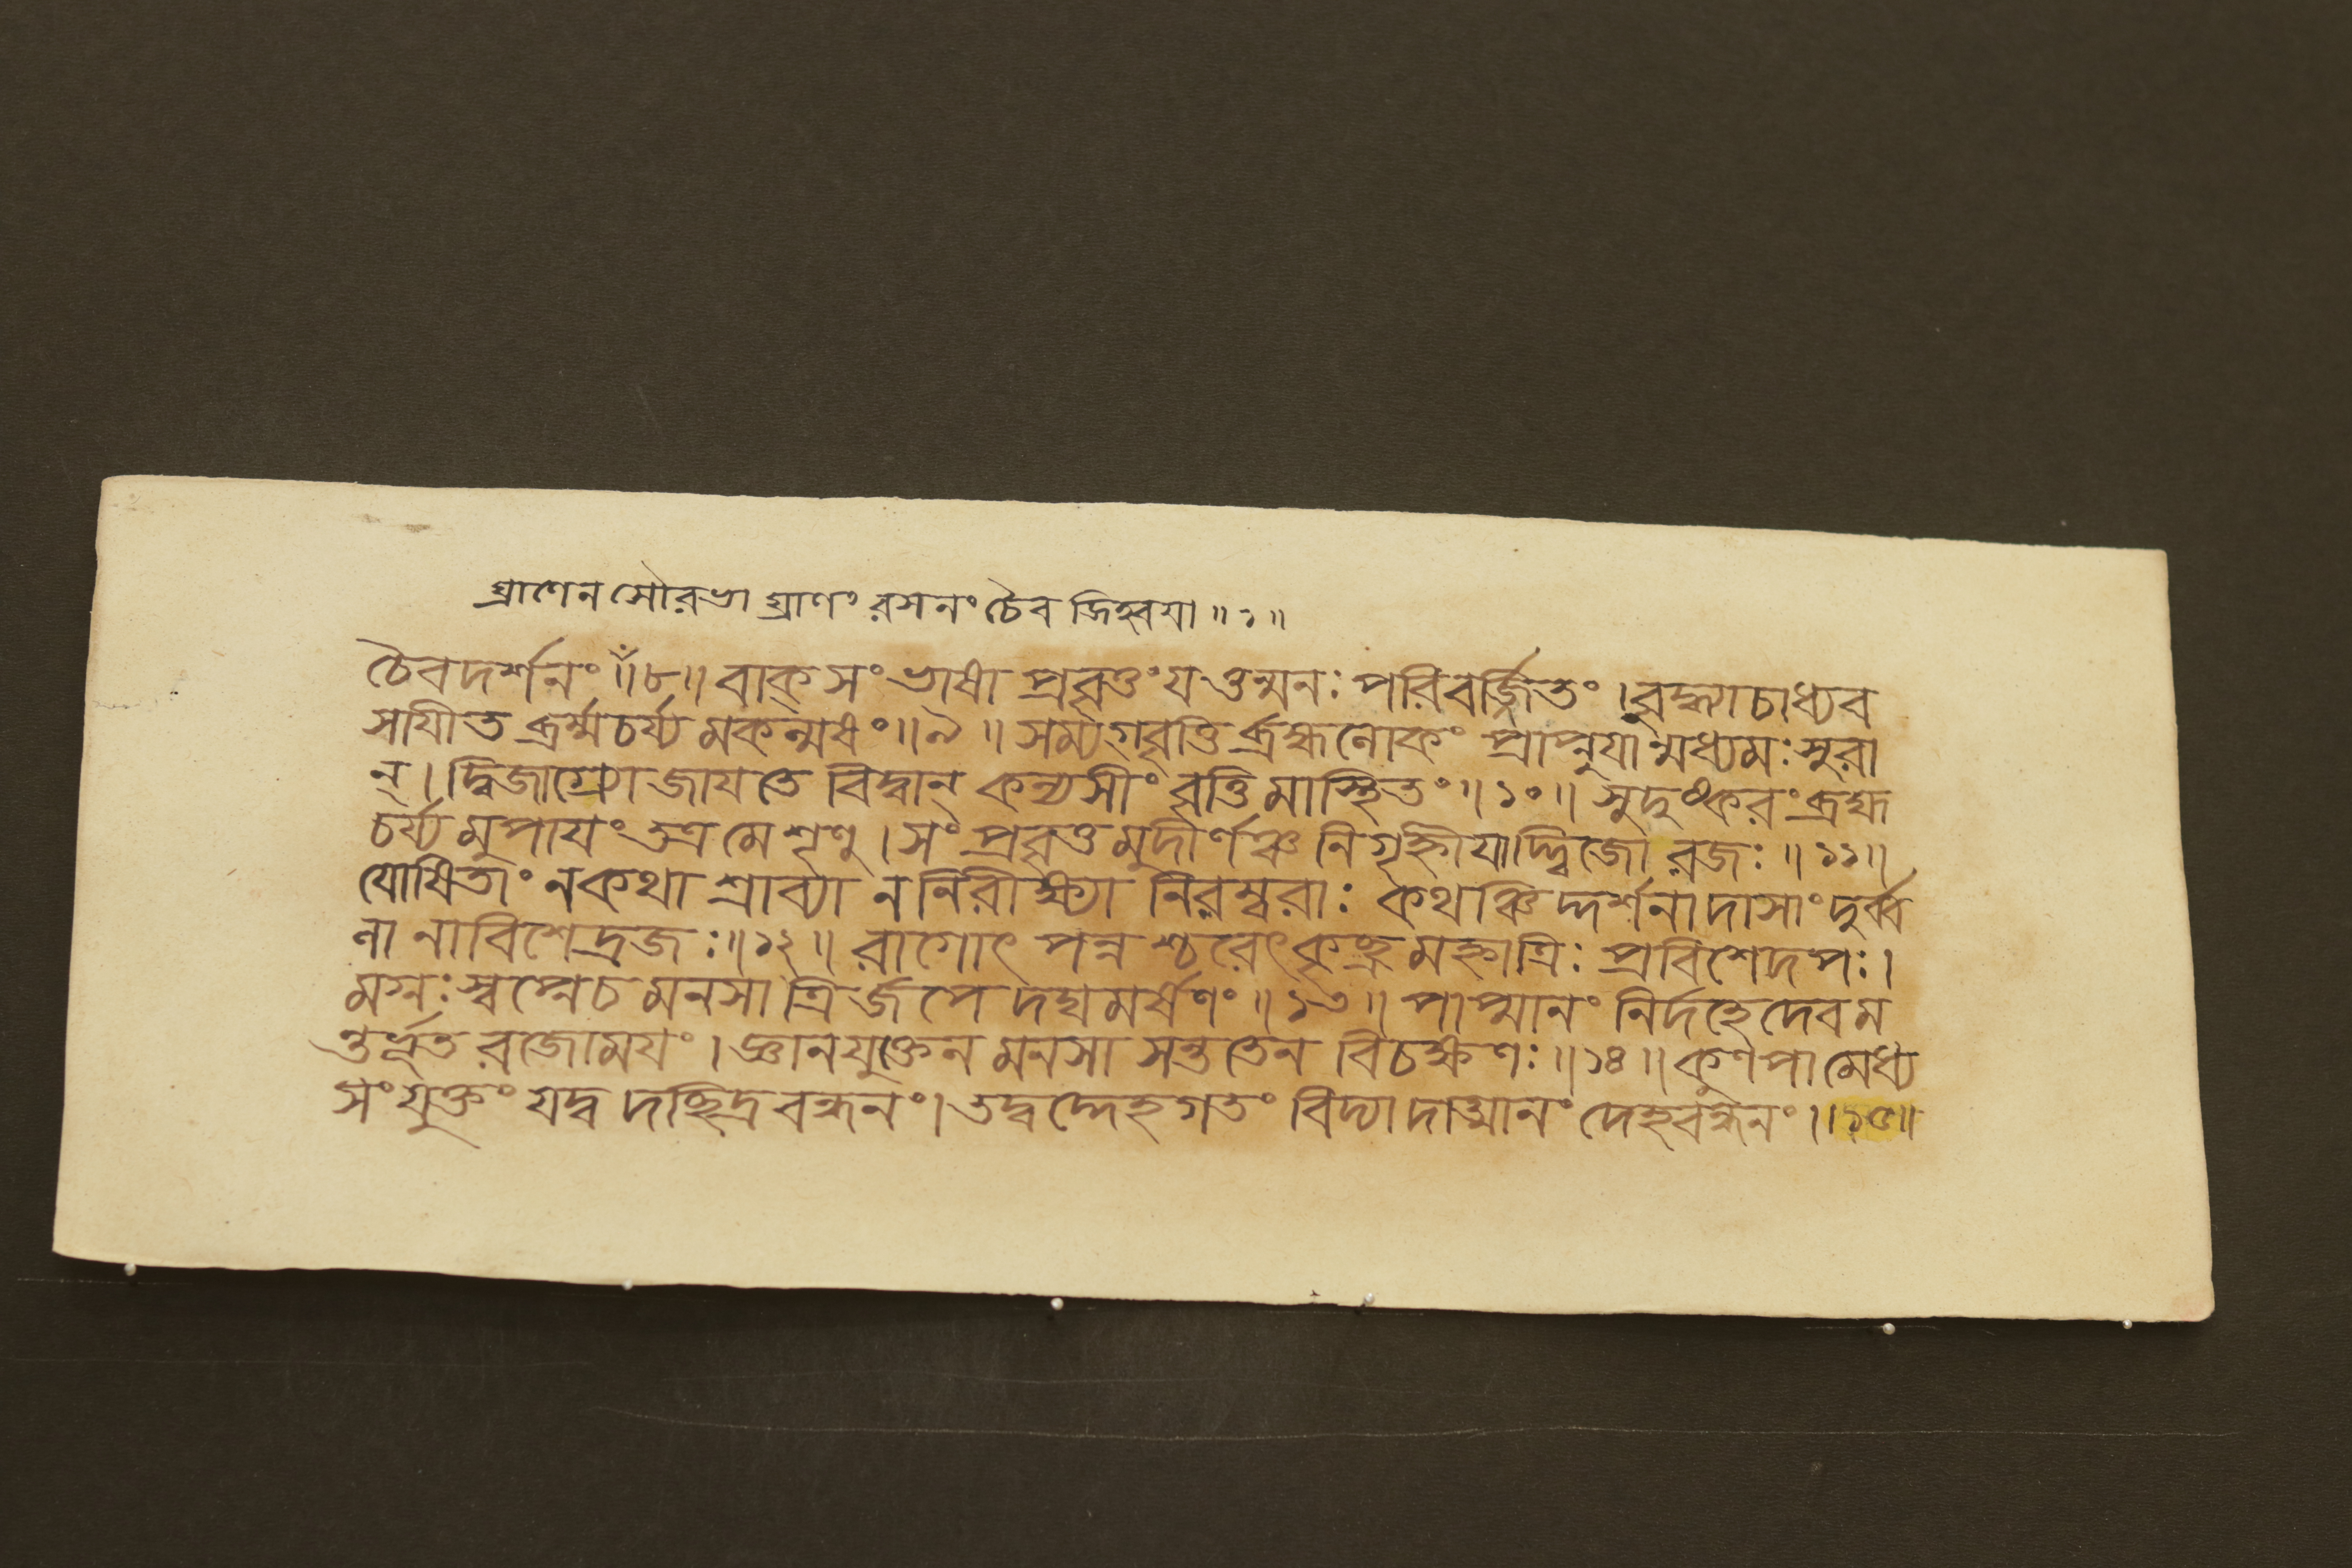 ঘ্রাণেন সৌরভা ঘ্রাণং রসনং চৈব জিহ্বয়া ॥১॥
চৈবদর্শনং ॥৮॥ বাক্ সংভাষা প্রবৃত্তং যত্তন্মনঃ পরিবর্জ্জিতং । বুদ্ধ্যা চাধ্যব
সাযীত ব্রর্হ্মচর্য্য মকল্মষং ॥৯॥ সম্যগ্ বৃত্তি র্ব্রহ্মলোকং প্রাপ্নুযান্মধ্যমঃ সুরা
ন্ । দ্বিজাগ্র্যো জাযতে বিদ্বান্ কন্যসীং বৃত্তিমাস্থিতং ॥১০॥ সুদুষ্করং ব্রহ্ম
চর্য্য মুপাযং তত্র মে শৃণু । সং প্রবৃত্ত মুদীর্ণঞ্চ নিগৃহ্নীযাদ্দ্বিজো রজঃ ॥১১॥
যোষিতাং ন কথা শ্রাব্যা ন নিরীক্ষ্যা নিরম্বরাঃ কথঞ্চিদ্দর্শনাদাসাং দুর্ব্ব
লা নাবিশেদ্রজঃ ॥১২॥ রাগোৎ পন্ন শ্চরেৎ কৃচ্ছ্র মহ্নাত্রিঃ প্রবিশেদপঃ ।
মগ্নঃ স্বপ্নে চ মনসা ত্রির্জপে দঘমর্ষণং ॥১৩॥ পাপ্মানং নির্দহেদেবম
ন্তর্ভূত রজোমযং । জ্ঞানযুক্তেন মনসা সন্ততেন বিচক্ষণঃ ॥১৪॥ কুণপামেধ্য
সং যুক্তং যদ্ব দচ্ছিদ্রবন্ধনং । তদ্বদ্দেহগতং বিদ্যাদাত্মানং দেহবন্ধনং ॥১৫॥